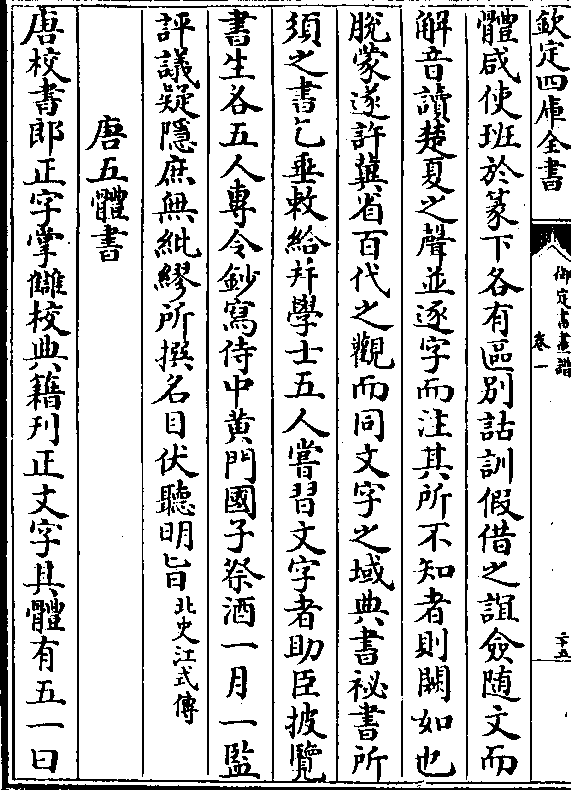 欽定四庫全書
御定書畫譜
卷一
二十五
體咸使班於篆下各有區別詁訓假借之誼僉随文而
解音讀楚夏之聲並逐字而注其所不知者則闕如也
脱蒙遂許冀省百代之觀而同文字之域典書祕書所
須之書乞垂敕給并學士五人嘗習文字者助臣披覽
書生各五人專令鈔寫侍中黄門國子祭酒一月一監
評議疑隱庶無紕繆所撰名目伏聽明旨北史江式傳
唐五體書
唐校書郎正字掌讎校典籍刊正文字其體有五一曰